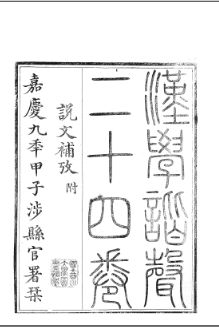 漢學諧聲
二十四卷
說文補攷附
嘉慶九秊甲子涉縣官署栞